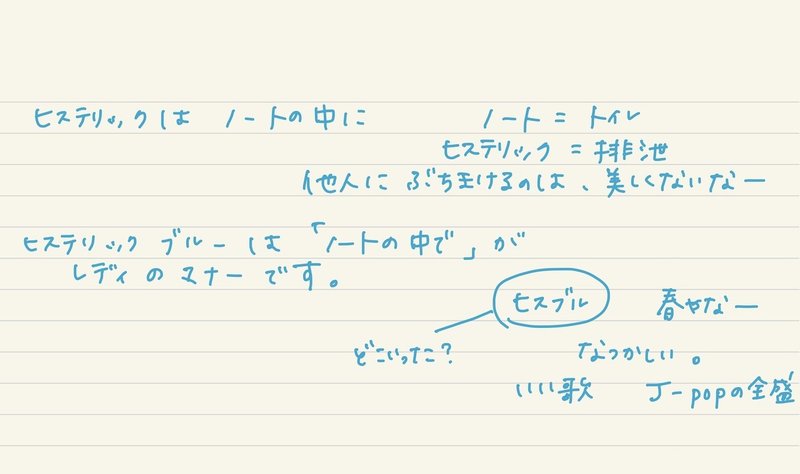 ヒステリックは ノートの中に
ノート = トイレ
ヒステリック = 排泄
他人に ぶちまけるのは、美しくないなー
ヒステリック ブルーは「ノートの中で」が
レディのマナーです。
ヒスブル
春やなー
どこいった?
なつかしい。
いい歌
J-popの全盛